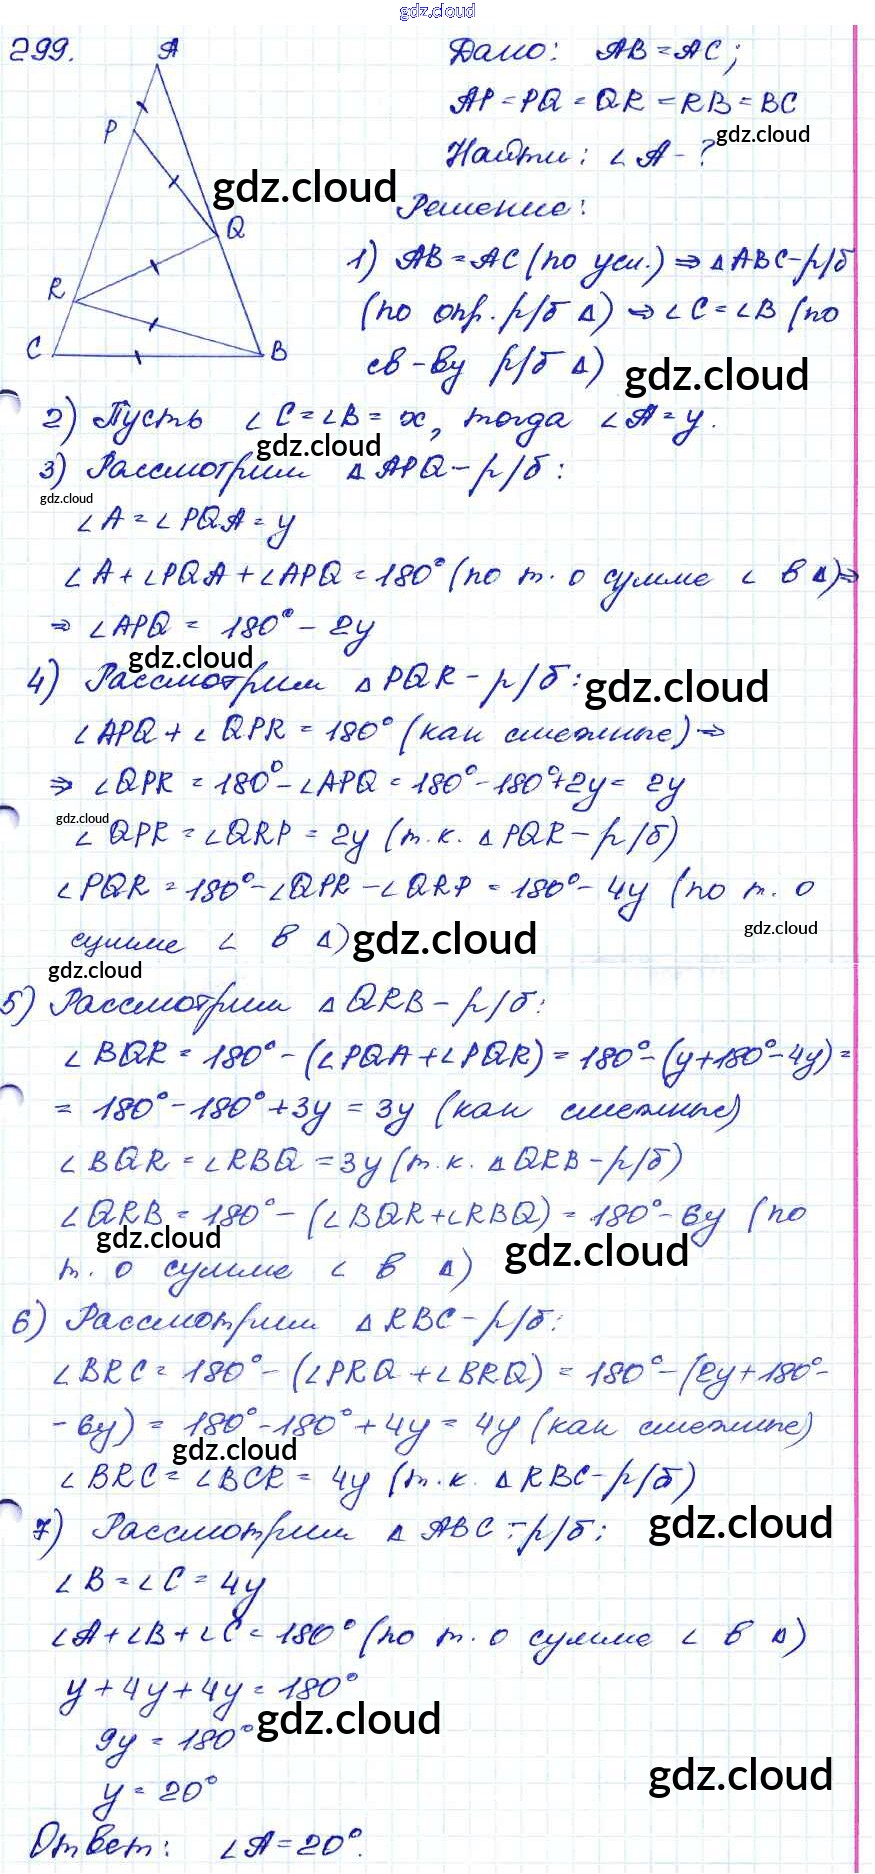 gdz.cloud
299.
A
P
Q
R
C
B
Дано: AB = AC;
AP = PQ = QR = RB = BC
gdz.cloud
Найти: ∠A - ?
gdz.cloud
Решение:
1) AB = AC (по усл.) ⇒ ΔABC - р/б
(по опр. р/б Δ) ⇒ ∠C = ∠B (по
св-ву р/б Δ)
gdz.cloud
2) Пусть ∠C = ∠B = x, тогда ∠A = y.
gdz.cloud
3) Рассмотрим ΔAPQ - р/б:
gdz.cloud
∠A = ∠PQA = y
∠A + ∠PQA + ∠APQ = 180° (по т. о сумме ∠ в Δ) ⇒
⇒ ∠APQ = 180° - 2y
gdz.cloud
4) Рассмотрим ΔPQR - р/б:
gdz.cloud
∠APQ + ∠QPR = 180° (как смежные) ⇒
⇒ ∠QPR = 180° - ∠APQ = 180° - 180° + 2y = 2y
gdz.cloud
∠QPR = ∠QRP = 2y (т.к. ΔPQR - р/б)
∠PQR = 180° - ∠QPR - ∠QRP = 180° - 4y (по т. о
сумме ∠ в Δ)
gdz.cloud
gdz.cloud
gdz.cloud
5) Рассмотрим ΔQRB - р/б:
∠BQR = 180° - (∠PQA + ∠PQR) = 180° - (y + 180° - 4y) =
= 180° - 180° + 3y = 3y (как смежные)
∠BQR = ∠RBQ = 3y (т.к. ΔQRB - р/б)
∠QRB = 180° - (∠BQR + ∠RBQ) = 180° - 6y (по
gdz.cloud
gdz.cloud
т. о сумме ∠ в Δ)
6) Рассмотрим ΔRBC - р/б:
∠BRC = 180° - (∠PRQ + ∠BRQ) = 180° - (2y + 180° -
- 6y) = 180° - 180° + 4y = 4y (как смежные)
gdz.cloud
∠BRC = ∠BCR = 4y (т.к. ΔRBC - р/б)
7) Рассмотрим ΔABC - р/б:
gdz.cloud
∠B = ∠C = 4y
∠A + ∠B + ∠C = 180° (по т. о сумме ∠ в Δ)
y + 4y + 4y = 180°
gdz.cloud
9y = 180°
y = 20°
gdz.cloud
Ответ: ∠A = 20°.